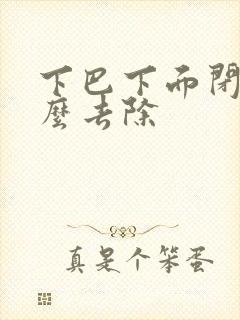 下巴下面閉
麼去除
真是个笨蛋